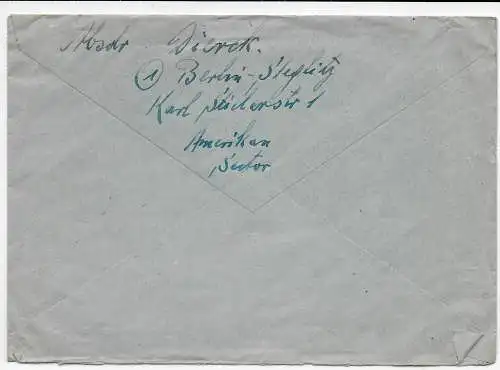 Absdr Dierck.
(1) Berlin-Steglitz
Karl Stielerstr 1
Amerikan
Sector